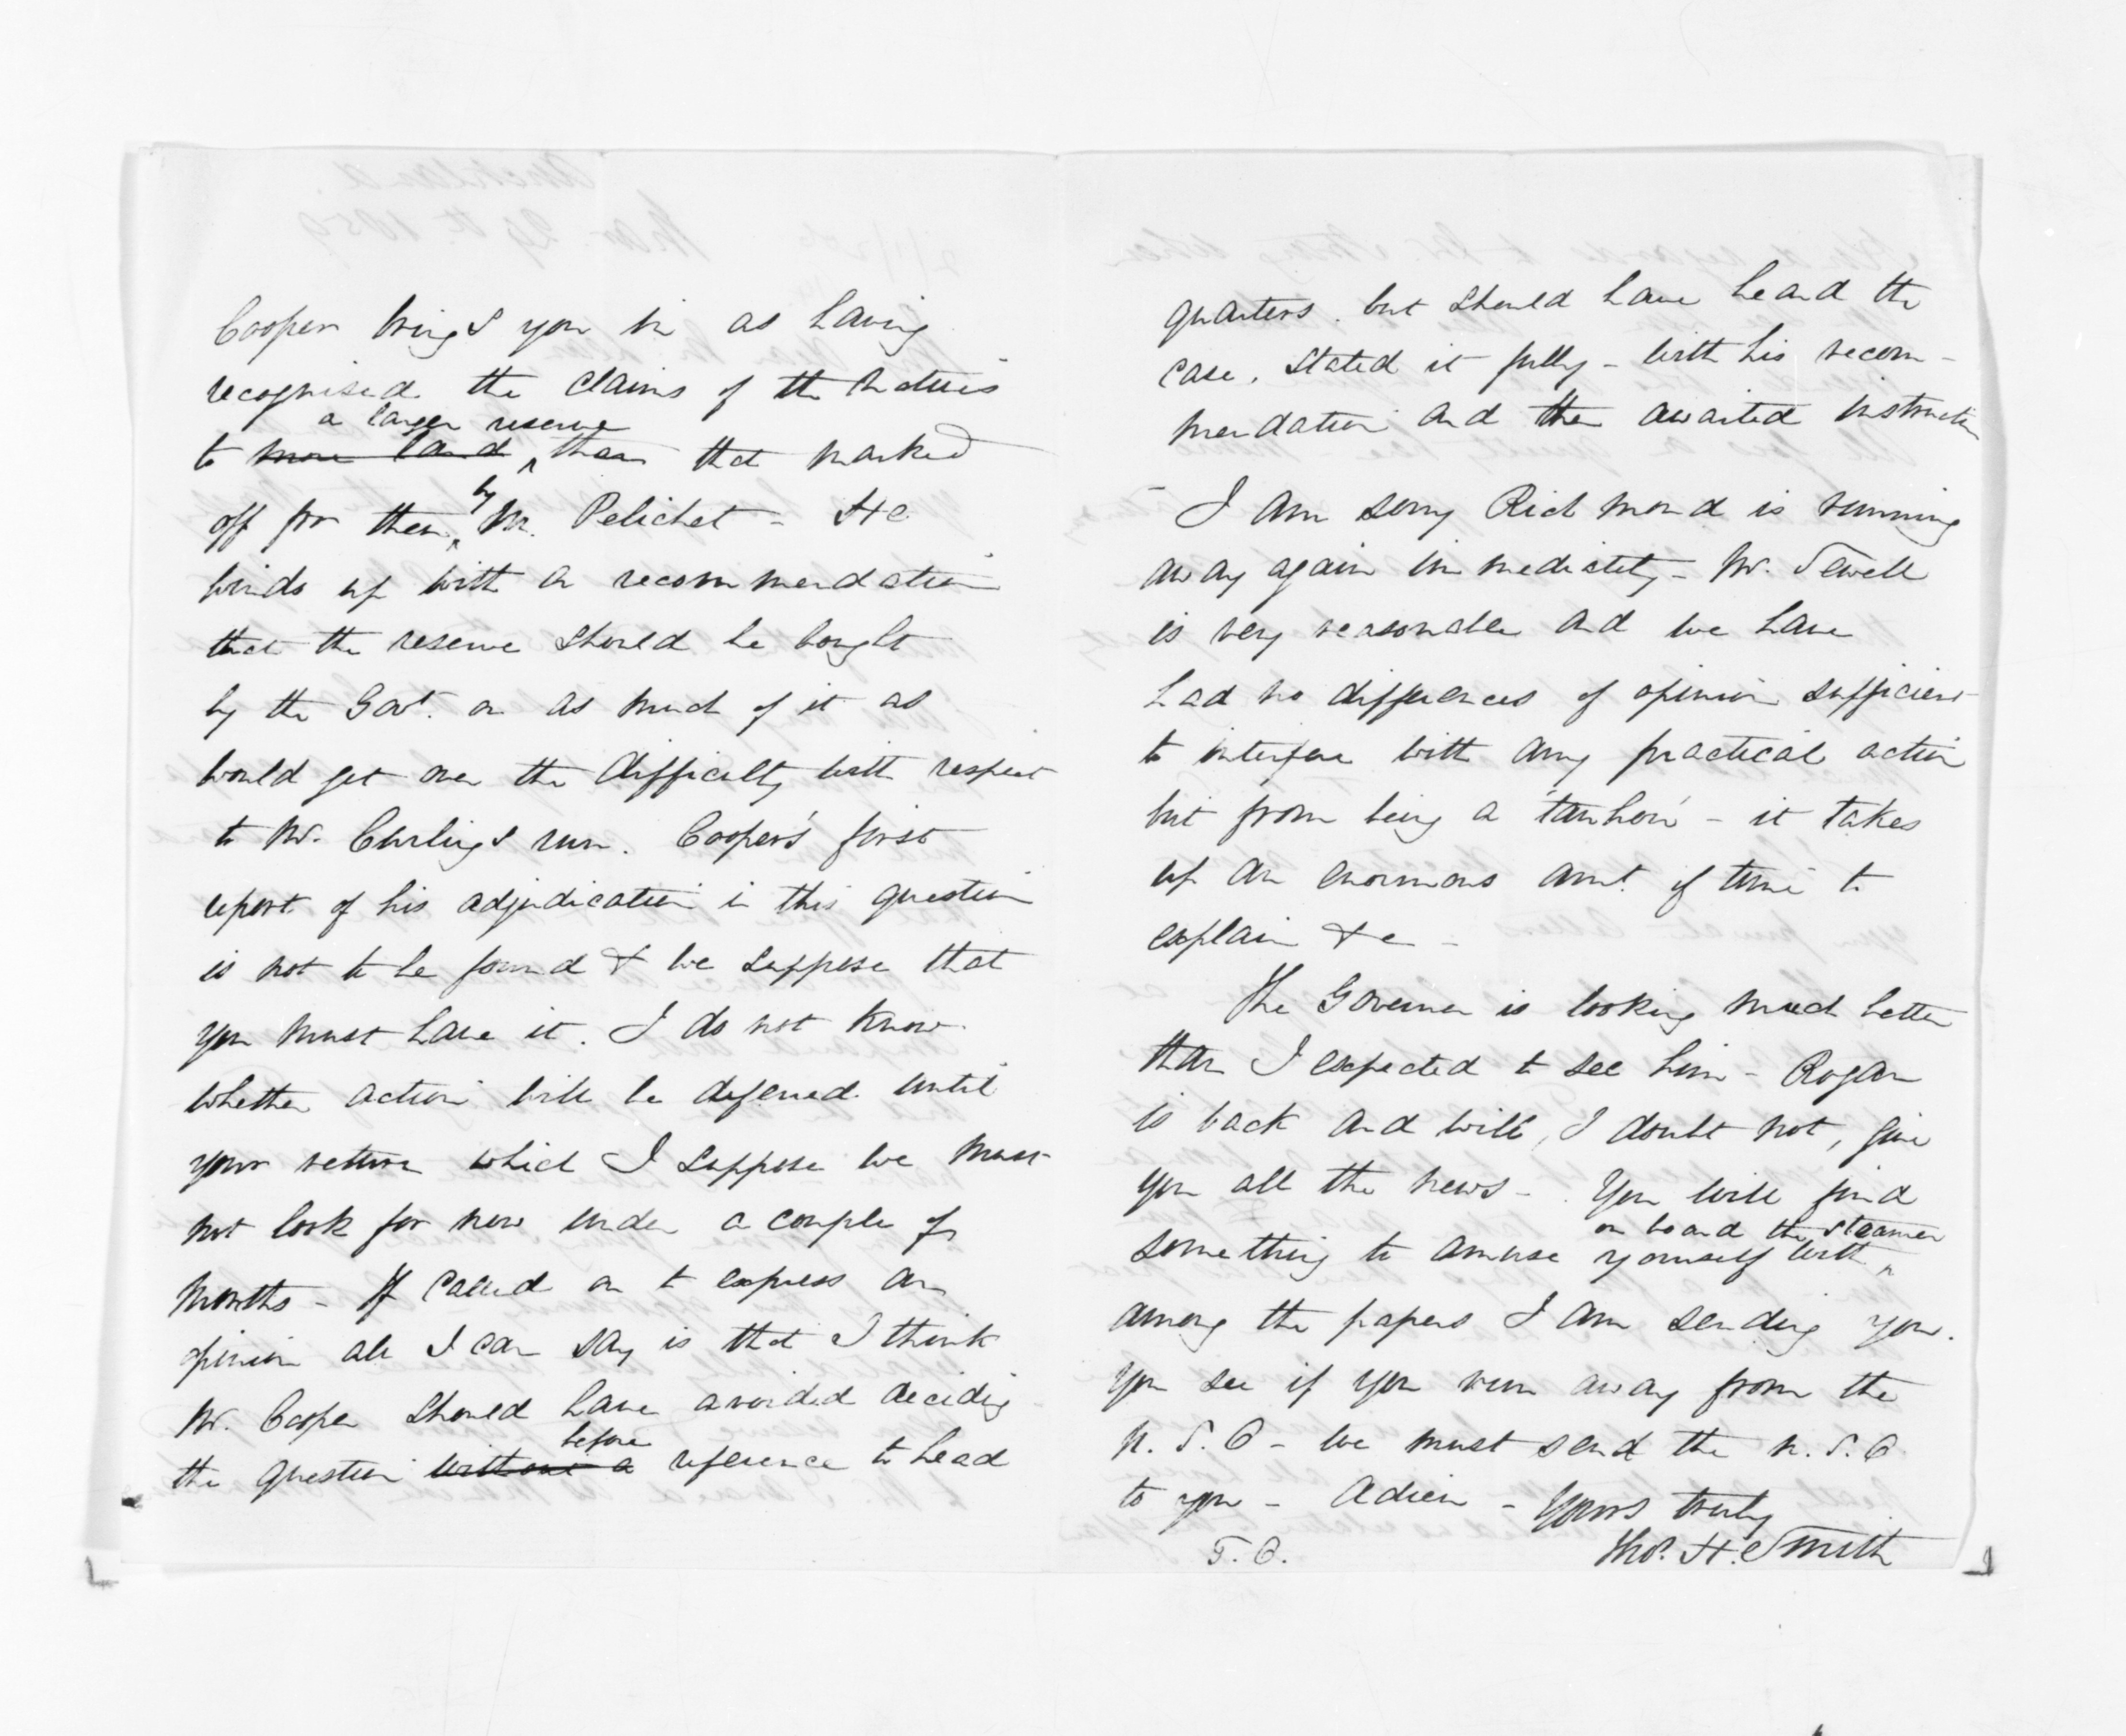 Cooper brings you in as having
recognised the claims of the Natives
a larger reserve
to more land than that marked
off for them by Mr. Pelichet - He
winds up with a recommendation
that the reserve should be bought
by the Govt. or as much of it as
would get over the difficulty with respect
to Mr. Curling's run. Cooper's first
report of his adjudication in this question
is not to be found & we suppose that
you must have it. I do not know
whether action will be deferred until
your return which I suppose we must
not look for now under a couple of
months - If called on to express an
opinion all I can say is that I think
Mr. Cooper should have avoided deciding
before
the question without a reference to head
quarters. but should have heard the
case, stated it fully - with his recom-
mendation and then awaited instruction
- I am sorry Richmond is running
away again immediately - Mr. Sewell
is very reasonable and we have
had no differences of opinion sufficient
to interfere with any practical action
but from being a 'tauhou' - it takes
up an enormous amt. of time to
explain &c -
The Governor is looking much better
than I expected to see him - Rogan
is back and will, I doubt not, give
you all the news - You will find
on board the steamer
something to amuse yourself with
among the papers I am sending you.
You see if you run away from the
N. S. O - we must send the N. S. O
to you - Adieu - Yours truly
T. O.
Thos. H. Smith